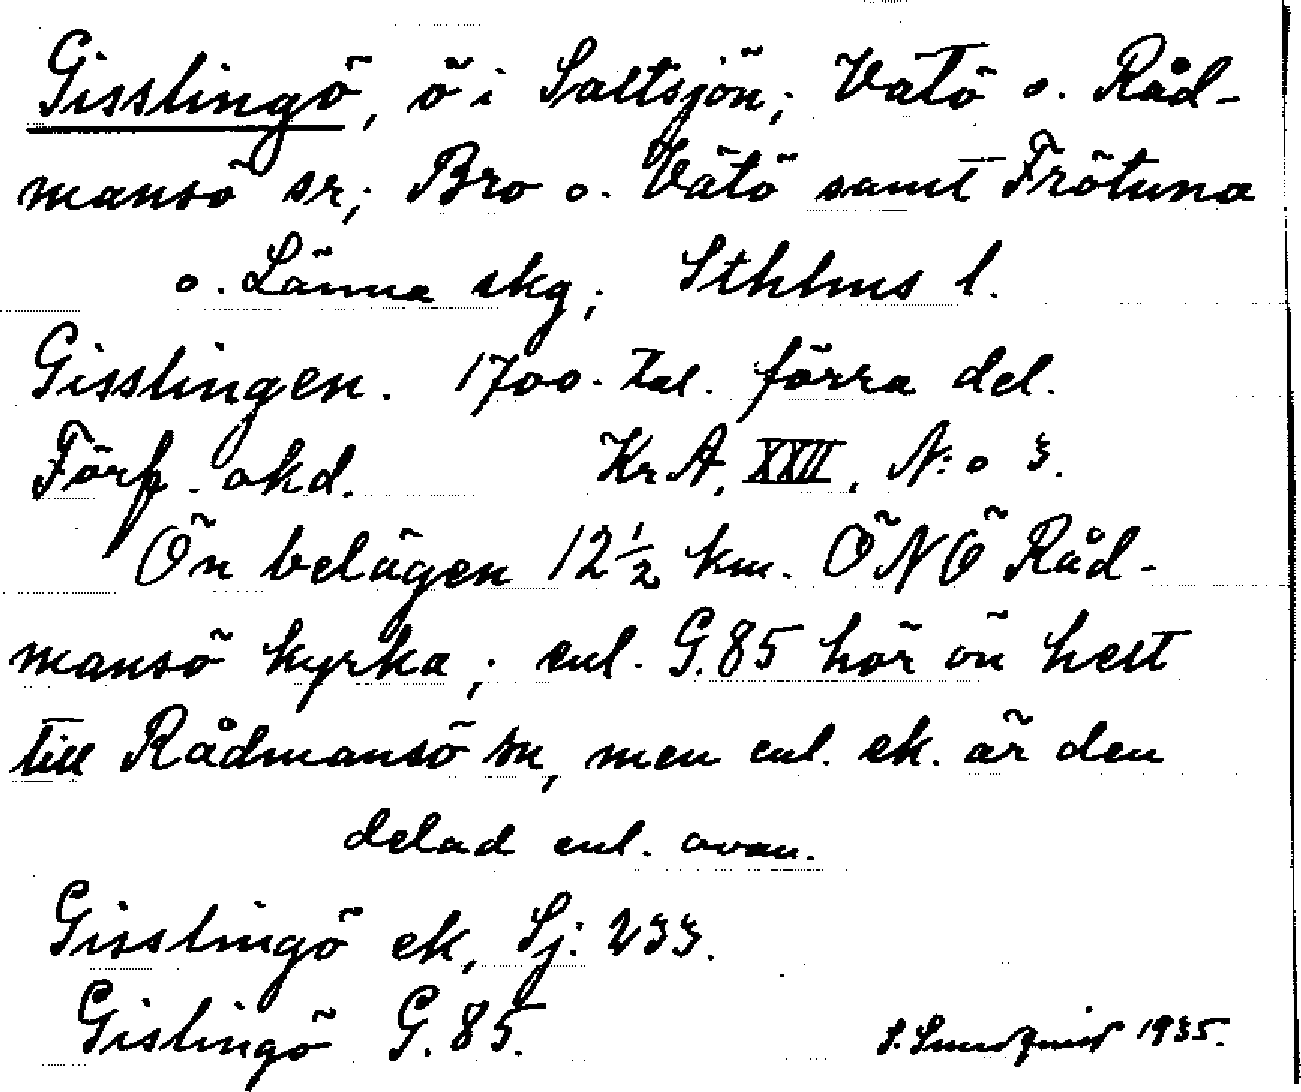 Gisslingö, ö i Saltsjön; Vätö o. Råd-
mansö sr; Bro o. Vätö samt Frötuna
o. Länna skg; Sthlms l.
Gisslingen. 1700-tal. förra del.
Förp. okd. Kr A. XXII. N:o 3.
Ön belägen 12½ km. ÖNÖ Råd-
mansö kyrka; enl. G. 85 hör ön helt
till Rådmansö sn, men enl. ek. är den
delad enl. ovan.
Gisslingö ek, Sj: 233.
Gislingö G. 85. S. Sundquist 1935.